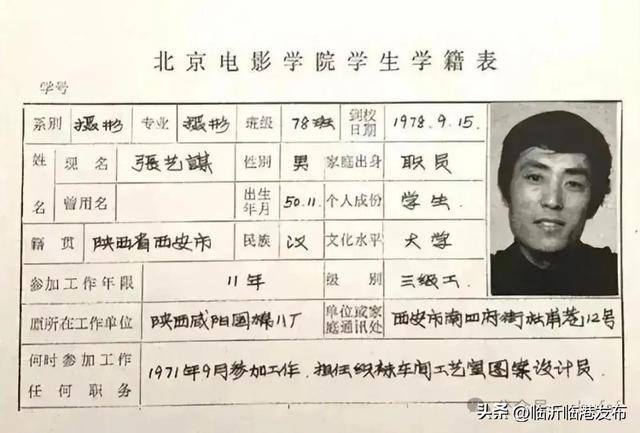 北京电影学院学生学籍表
学号
系别 摄影 专业 摄影 班级 78班 到校日期 1978.9.15.
姓名 现名 張艺謀 性别 男 家庭出身 职员
曾用名 出生年月 50.11. 个人成份 学生
籍贯 陕西省西安市 民族 汉 文化水平 大学
参加工作年限 11年 级别 三级工
原所在工作单位 陕西咸阳国棉八厂 单位或家庭通讯处 西安市南四府街杜甫巷12号
何时参加工作任何职务 1971年9月参加工作.担任织袜车间工艺室图案设计员.
头条@临沂临港发布